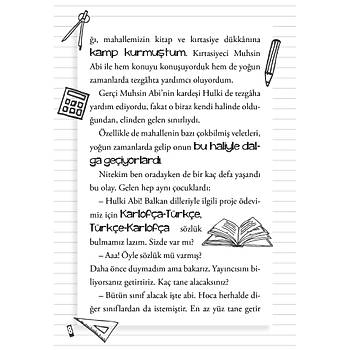 ğı, mahallemizin kitap ve kırtasiye dükkânına
kamp kurmuştum. Kırtasiyeci Muhsin
Abi ile hem konuyu konuşuyorduk hem de yoğun
zamanlarda tezgâhta yardımcı oluyordum.
Gerçi Muhsin Abi'nin kardeşi Hulki de tezgâha
yardım ediyordu, fakat o biraz kendi halinde oldu-
ğundan, elinden gelen sınırlıydı.
Özellikle de mahallenin bazı çokbilmiş veletleri,
yoğun zamanlarda gelip onun bu haliyle dal-
ga geçiyorlardı.
Nitekim ben oradayken de bir kaç defa yaşandı
bu olay. Gelen hep aynı çocuklardı:
– Hulki Abi! Balkan dilleriyle ilgili proje ödevi-
miz için Karlofça-Türkçe,
Türkçe-Karlofça sözlük
bulmamız lazım. Sizde var mı?
– Aaa! Öyle sözlük mü varmış?
Daha önce duymadım ama bakarız. Yayıncısını bi-
liyorsanız getiririz. Kaç tane alacaksınız?
– Bütün sınıf alacak işte abi. Hoca herhalde di-
ğer sınıflardan da istemiştir. En az yüz tane getir